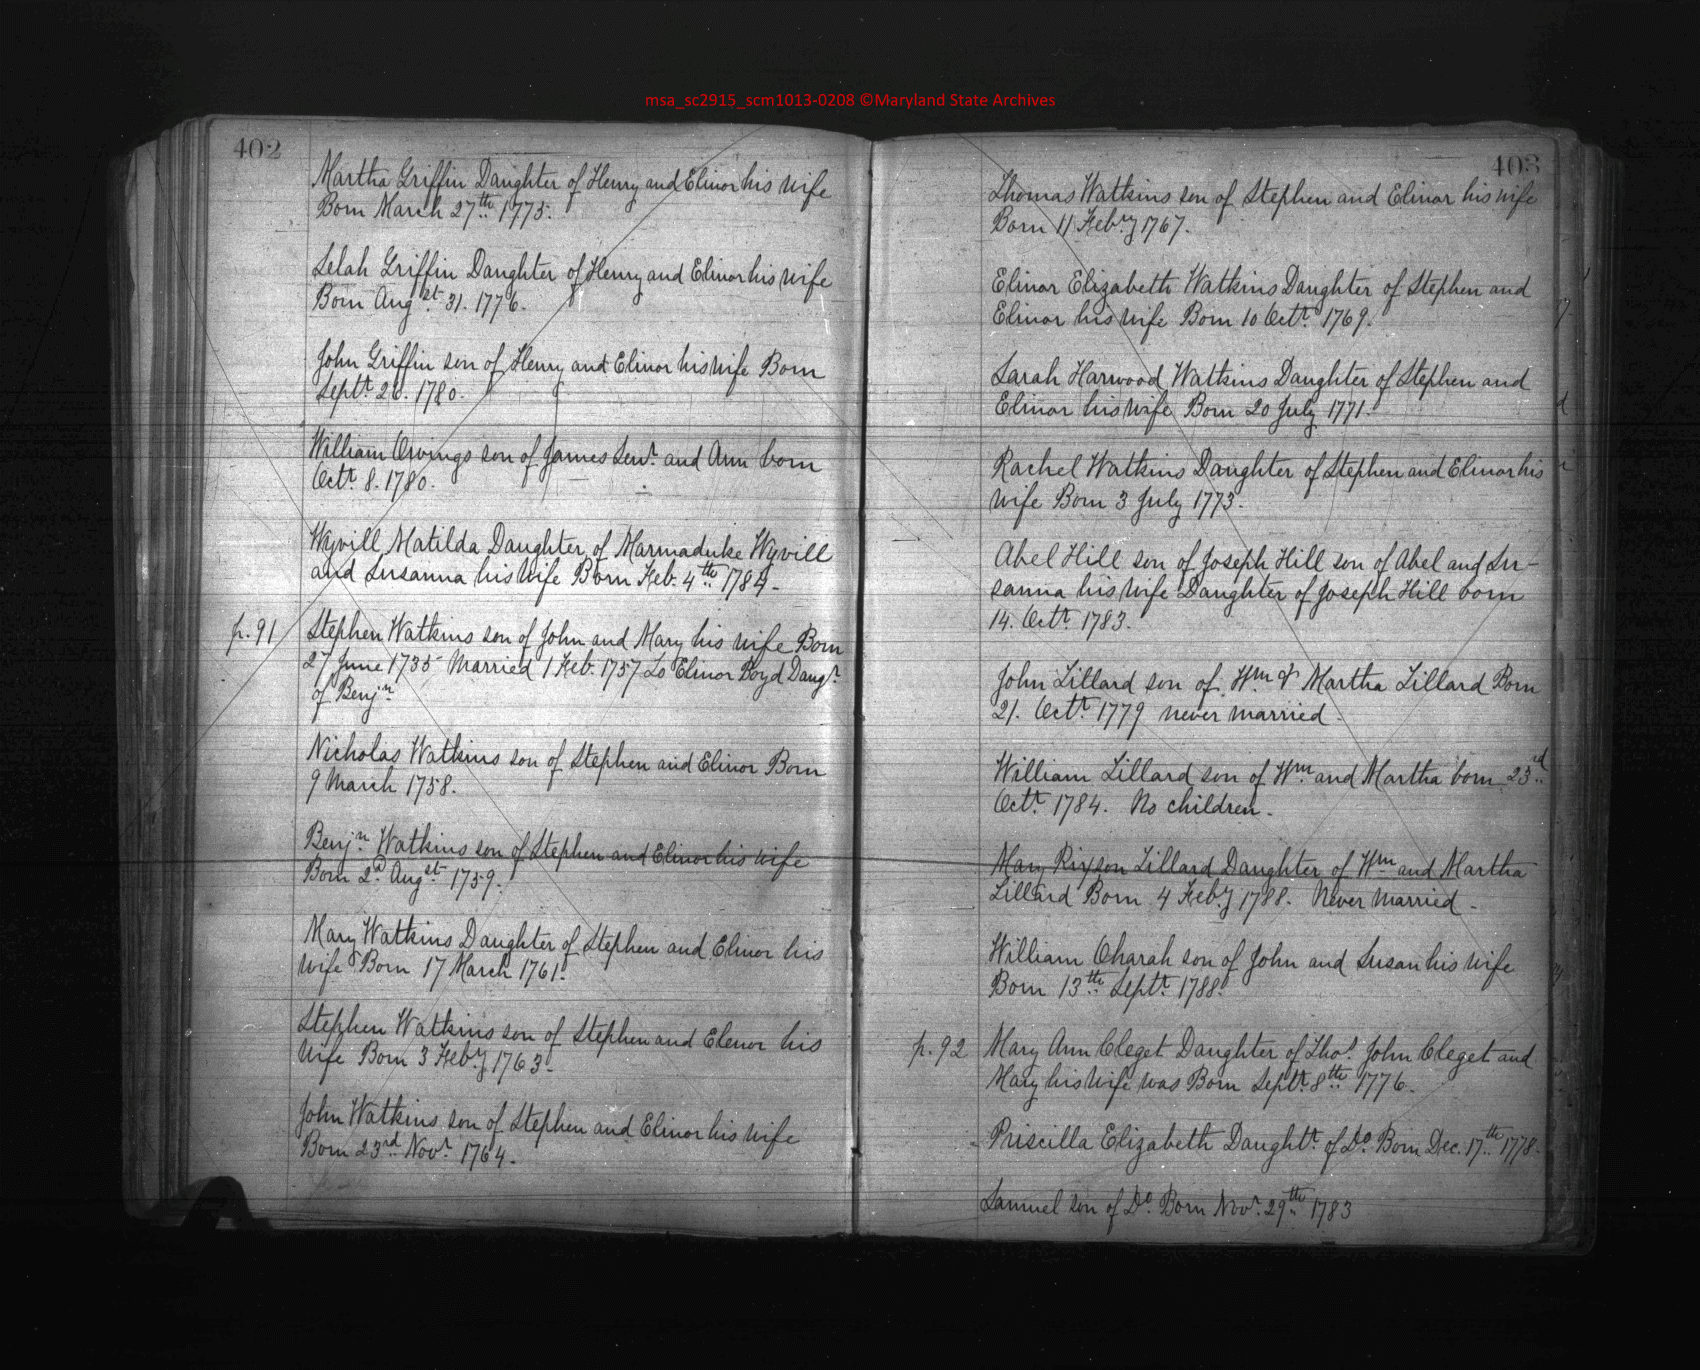 msa_sc2915_scm1013-0208 ©Maryland State Archives
402
Martha Griffin Daughter of Henry and Elinor his wife
Born March 27th 1775.
Lelah Griffin Daughter of Henry and Elinor his wife
Born Augst 31. 1776.
John Griffin son of Henry and Elinor his wife Born
Septr 26. 1780.
William Owings son of James Senr. and Ann born
Octr 8. 1780.
Wyvill Matilda Daughter of Marmaduke Wyvill
and Susanna his wife Born Feb. 4th 1784.
p. 91 Stephen Watkins son of John and Mary his wife Born
27 June 1735 Married 1 Feb. 1757 to Elinor Boyd Daugr
of Benjn
Nicholas Watkins son of Stephen and Elinor Born
9 March 1758.
Benjn Watkins son of Stephen and Elinor his wife
Born 2d Augst 1759.
Mary Watkins Daughter of Stephen and Elinor his
wife Born 17 March 1761.
Stephen Watkins son of Stephen and Elenor his
Wife Born 3 Feby 1763.
John Watkins son of Stephen and Elinor his wife
Born 23rd Novr 1764.
403
Thomas Watkins son of Stephen and Elinor his wife
Born 11 Febry 1767.
Elinor Elizabeth Watkins Daughter of Stephen and
Elinor his wife Born 10 Octr 1769.
Sarah Harwood Watkins Daughter of Stephen and
Elinor his wife Born 20 July 1771.
Rachel Watkins Daughter of Stephen and Elinor his
wife Born 3 July 1773.
Abel Hill son of Joseph Hill son of Abel and Su-
sanna his wife Daughter of Joseph Hill born
14. Octr 1783.
John Lillard son of Wm & Martha Lillard Born
21. Octr 1779 never married.
William Lillard son of Wm and Martha born 23rd
Octr 1784. No children.
Mary Lillard Daughter of Wm and Martha
Lillard Born 4 Feby 1788. Never Married.
William Oharah son of John and Susan his wife
Born 13th Septr 1788.
p. 92 Mary Ann Cleget Daughter of Thos. John Cleget and
Mary his wife was Born Septr 8th 1776.
Priscilla Elizabeth Daughtr of Do Born Dec. 17th 1778.
Samuel son of Do. Born Novr 29th 1783